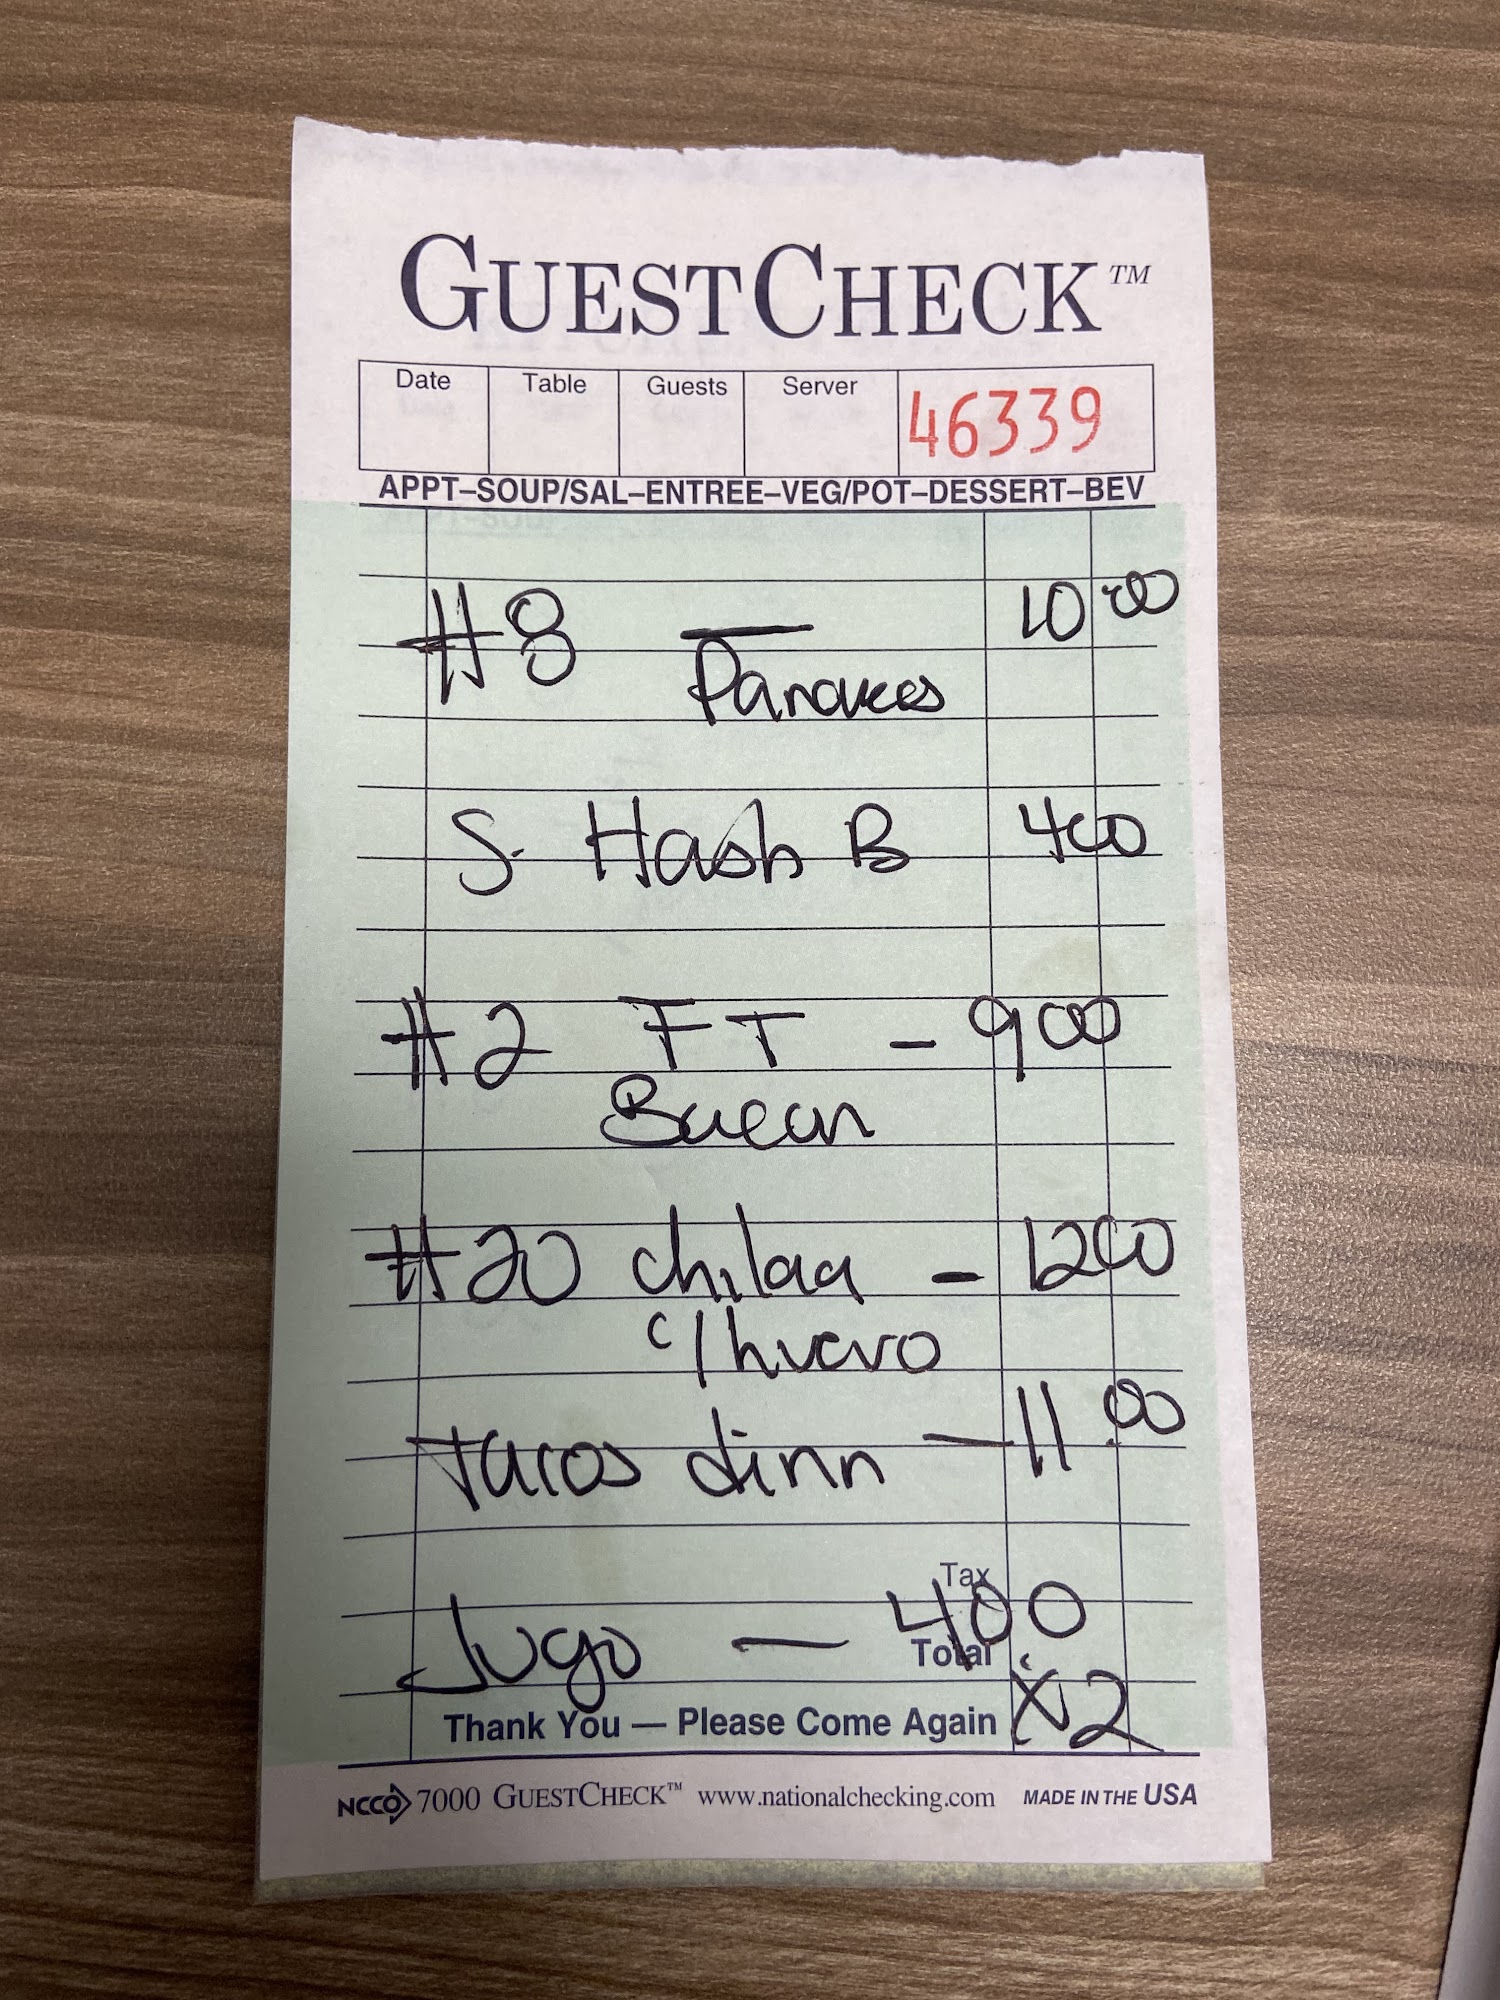 GUESTCHECK™
Date Table Guests Server 46339
APPT–SOUP/SAL–ENTREE–VEG/POT–DESSERT–BEV
#8 — 10.00
Panquees
S. Hash B 400
#2 FT – 900
Bacon
#20 chilaq – 1200
c/huevo
Tacos dinn – 11.00
Tax
Jugo — 400
Total
x2
Thank You — Please Come Again
NCCO 7000 GUESTCHECK™ www.nationalchecking.com MADE IN THE USA